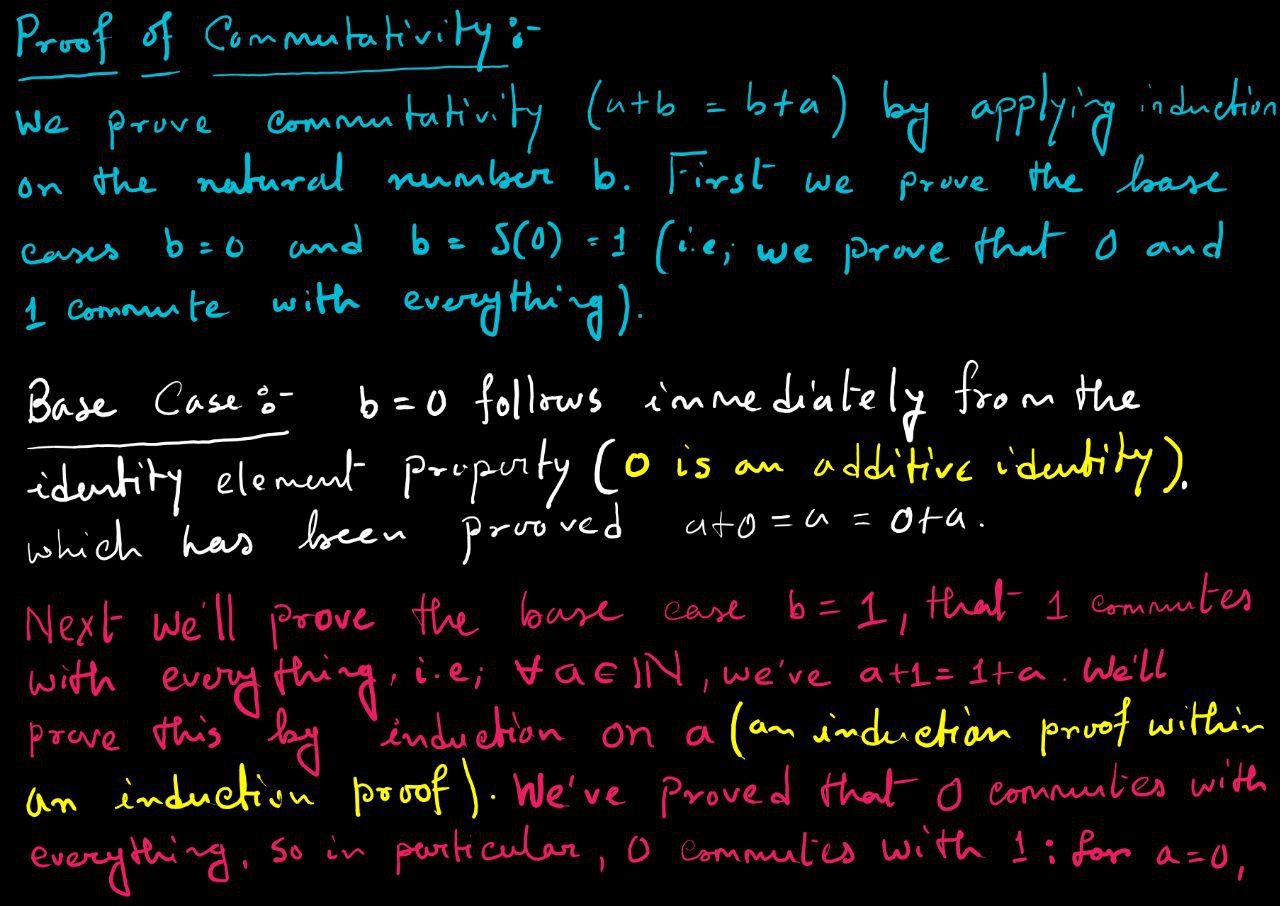 Proof of Commutativity :-
We prove commutativity (a+b = b+a) by applying induction
on the natural number b. First we prove the base
cases b=0 and b = S(0) = 1 (i.e; we prove that 0 and
1 commute with everything).
Base Case :- b=0 follows immediately from the
identity element property (0 is an additive identity).
which has been prooved a+0 = a = 0+a.
Next we'll prove the base case b=1, that 1 commutes
with everything, i.e; ∀ a ∈ ℕ, we've a+1 = 1+a. We'll
prove this by induction on a (an induction proof within
an induction proof). We've Proved that 0 commutes with
everything, so in particular, 0 commutes with 1: for a=0,